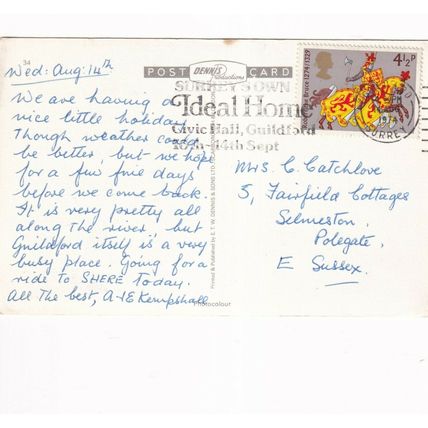 34
Wed: Aug: 14th
POST DENNIS Productions CARD
We are having a
nice little holiday
though weather could
be better, but we hope
for a few fine days
before we come back.
It is very pretty all
along the river, but
Guildford itself is a very
busy place. Going for a
ride to SHERE today.
All the best, A & E Kempshall
SURREY'S OWN
Ideal Home
Civic Hall, Guildford
14th Sept
Printed & Published by E. T. W. DENNIS & SONS LTD
Photocolour
Bruce 1274/1329
4½P
PM
1974
SURREY
Mrs C. Catchlove
5, Fairfield Cottages
Selmeston,
Polegate,
E Sussex.